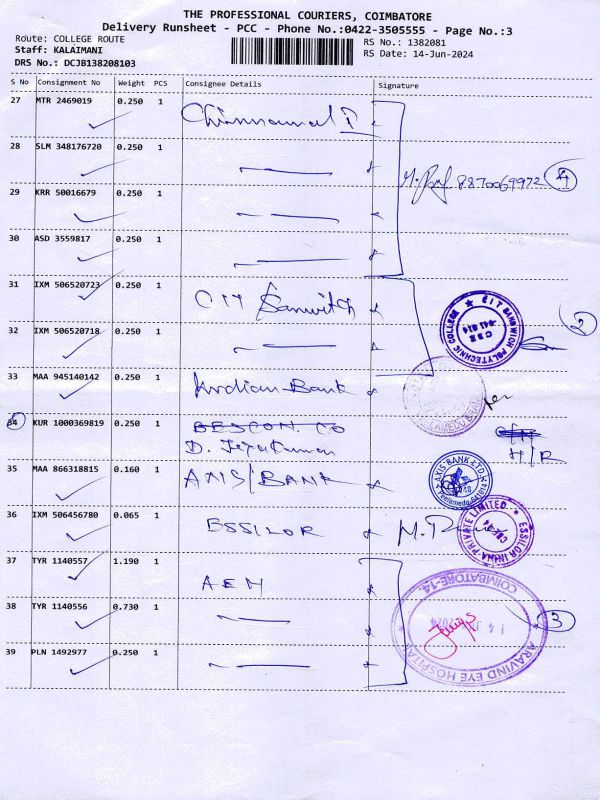 THE PROFESSIONAL COURIERS, COIMBATORE
Delivery Runsheet - PCC - Phone No.:0422-3505555 - Page No.:3
Route: COLLEGE ROUTE
RS No.: 1382081
Staff: KALAIMANI
RS Date: 14-Jun-2024
DRS No.: DCJB138208103
S No Consignment No Weight PCS Consignee Details Signature
27 MTR 2469019 0.250 1
28 SLM 348176720 0.250 1
8870069972 4
29 KRR 50016679 0.250 1
30 ASD 3559817 0.250 1
31 IXM 506520723 0.250 1 CIT Sanwitch
CIT SANDWICH POLYTECHNIC COLLEGE
CBE
641 014
2
32 IXM 506520718 0.250 1
33 MAA 945140142 0.250 1 Indian Bank
34 KUR 1000369819 0.250 1 BESCON. CO
D. Jeyakumar
H/R
35 MAA 866318815 0.160 1 AXIS BANK
AXIS BANK LTD.
36 IXM 506456780 0.065 1 ESSILOR
ESSILOR INDIA PRIVATE LIMITED
37 TYR 1140557 1.190 1 AEH
38 TYR 1140556 0.730 1
ARAVIND EYE HOSPITAL
COIMBATORE-14.
3
39 PLN 1492977 0.250 1